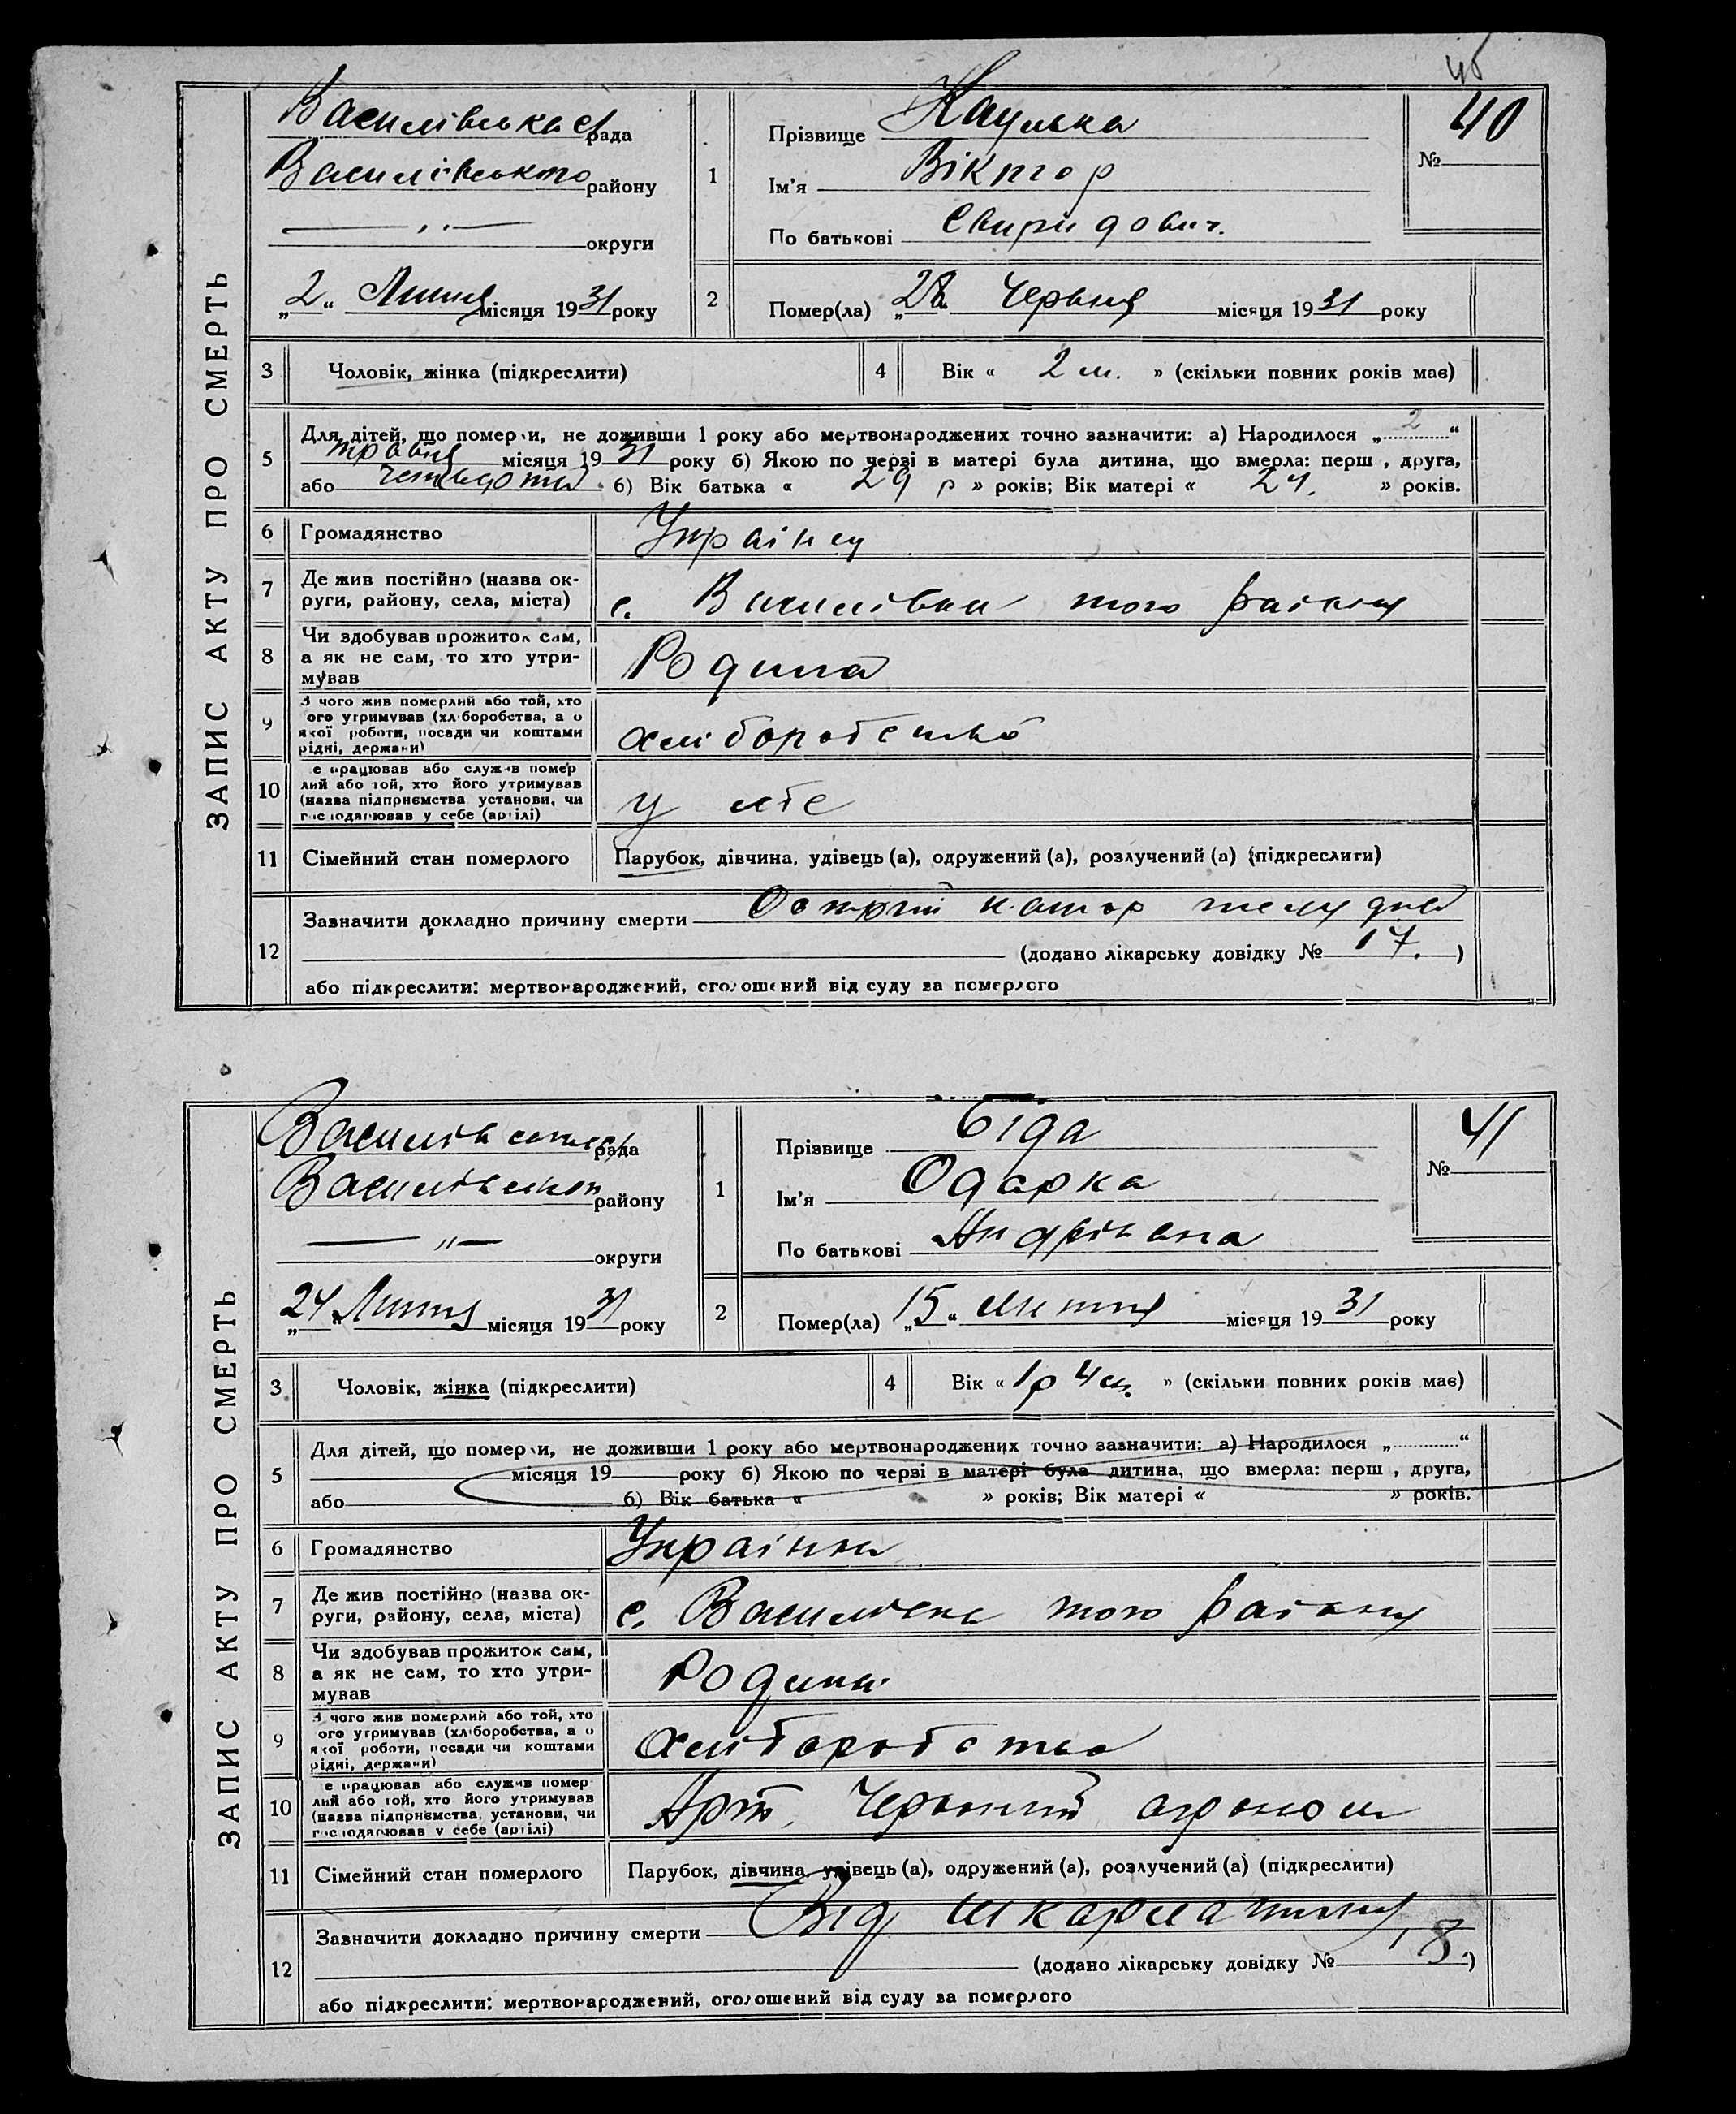 40
ЗАПИС АКТУ ПРО СМЕРТЬ
Василівська с/рада
Василівського району
— „ — округи
„2“ Липня місяця 1931 року
1
Прізвище
Ім'я Віктор
По батькові Свиридович.
№ 40
2
Помер(ла) „28“ Червня місяця 1931 року
3 Чоловік, жінка (підкреслити)
4 Вік « 2 м. » (скільки повних років має)
5 Для дітей, що померли, не доживши 1 року або мертвонароджених точно зазначити: а) Народилося „2“
травня місяця 1931 року б) Якою по черзі в матері була дитина, що вмерла: перш , друга,
або четверта б) Вік батька « 29 р » років; Вік матері « 24. » років.
6 Громадянство Украінец
7 Де жив постійно (назва ок-
руги, району, села, міста) с. Василівка того району
8 Чи здобував прожиток сам,
а як не сам, то хто утри-
мував Родина
9 З чого жив померлий або той, хто
ого утримував (хліборобства, а о
якої роботи, посади чи коштами
рідні, держави) хліборобство
10 е працював або служив помер
лий або той, хто його утримував
(назва підприємства установи, чи
господарював у себе (артілі) у
11 Сімейний стан померлого Парубок, дівчина, удівець (а), одружений (а), розлучений (а) (підкреслити)
12 Зазначити докладно причину смерти Острий катар желудка
(додано лікарську довідку № 17. )
або підкреслити: мертвонароджений, оголошений від суду за померлого
ЗАПИС АКТУ ПРО СМЕРТЬ
Василівська с/рада
Василівського району
— „ — округи
„24“ Липня місяця 1931 року
1
Прізвище Біда
Ім'я Одарка
По батькові Андріївна
№ 41
2
Помер(ла) „15“ Липня місяця 1931 року
3 Чоловік, жінка (підкреслити)
4 Вік « 1 р 4 м. » (скільки повних років має)
5 Для дітей, що померли, не доживши 1 року або мертвонароджених точно зазначити: а) Народилося „ “
місяця 19 року б) Якою по черзі в матері була дитина, що вмерла: перш , друга,
або б) Вік батька « » років; Вік матері « » років.
6 Громадянство Украінка
7 Де жив постійно (назва ок-
руги, району, села, міста) с. Василівка того району
8 Чи здобував прожиток сам,
а як не сам, то хто утри-
мував Родина
9 З чого жив померлий або той, хто
ого утримував (хліборобства, а о
якої роботи, посади чи коштами
рідні, держави) хліборобство
10 е працював або служив помер
лий або той, хто його утримував
(назва підприємства, установи, чи
господарював у себе (артілі) Арт. Червоний агроном
11 Сімейний стан померлого Парубок, дівчина, удівець (а), одружений (а), розлучений (а) (підкреслити)
12 Зазначити докладно причину смерти Від шкарлатини
(додано лікарську довідку № 18. )
або підкреслити: мертвонароджений, оголошений від суду за померлого